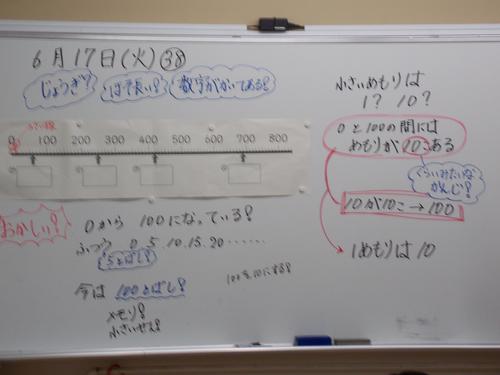 6月17日(火)38
じょうぎ?
はば長い?
数字がかいてある?
小さい線
0 100 200 300 400 500 600 700 800
おかしい?
0から 100になっている?
ふつう 0.5.10.15.20……
5とばし?
今は 100とばし?
メモリ?
小さいせん?
100を10にする?
小さいめもりは
1? 10?
0と100の間には
めもりが10こある
かんじ?
10が10こ→100
1めもりは10